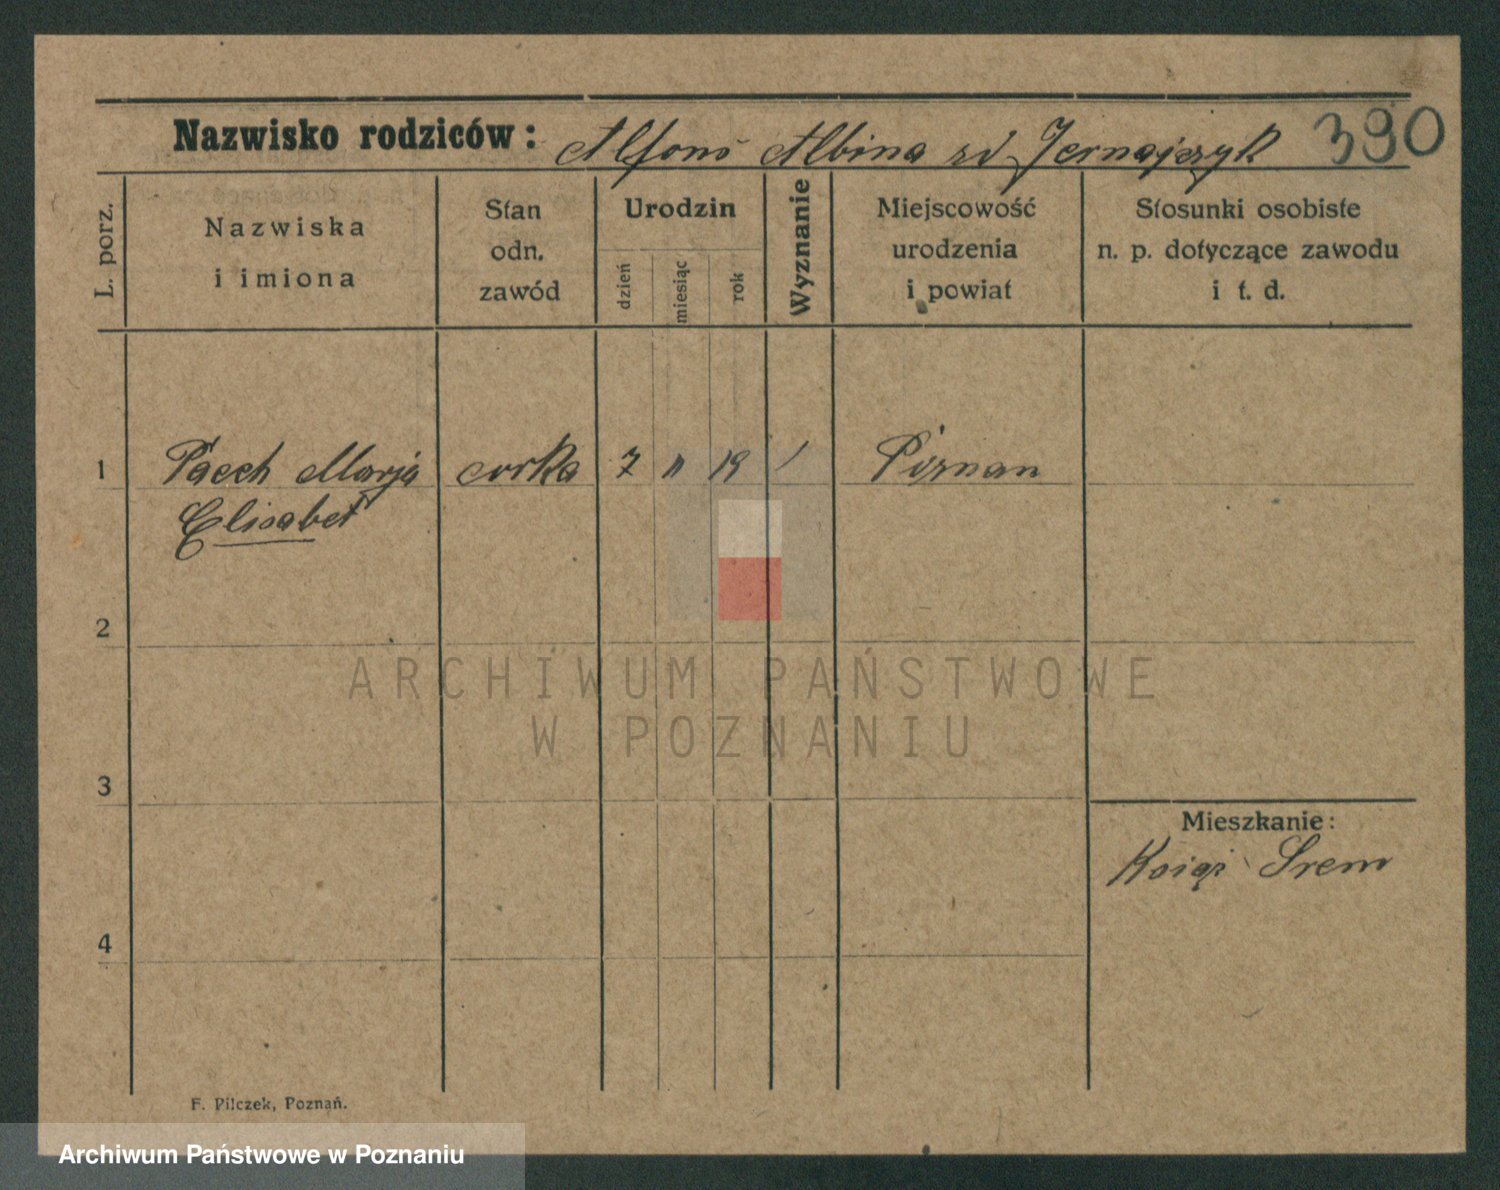 Nazwisko rodziców: Alfons Albina zd Jernajczyk 390
L. porz.
Nazwiska
i imiona
Stan
odn.
zawód
Urodzin
dzień
miesiąc
rok
Wyznanie
Miejscowość
urodzenia
i powiat
Stosunki osobiste
n. p. dotyczące zawodu
i t. d.
1 Paech Marja corka 7 11 19 / Poznan
Elisabet
2
3
Mieszkanie:
Książ Srem
4
F. Pilczek, Poznań.
ARCHIWUM PAŃSTWOWE
W POZNANIU
Archiwum Państwowe w Poznaniu